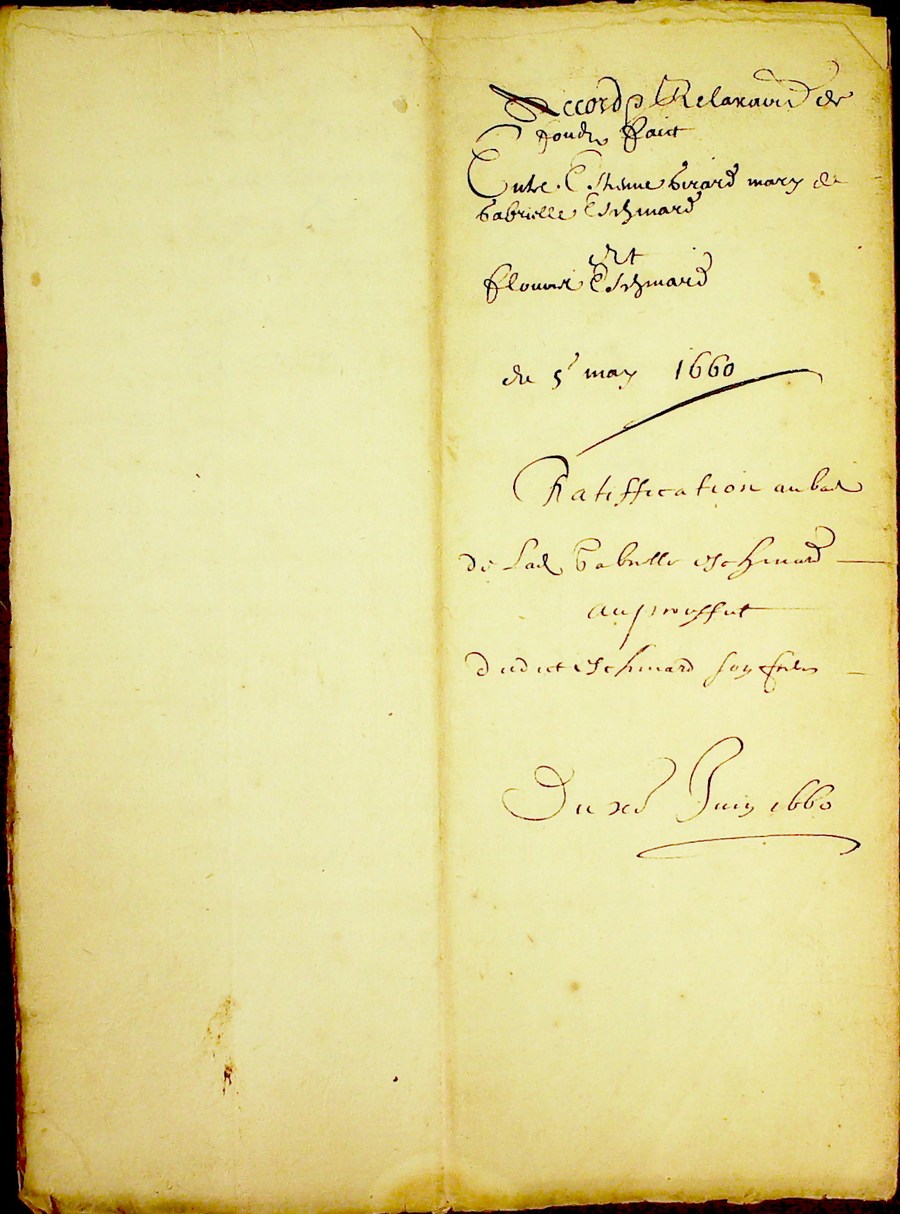 Accord & Relaxa͠on de
fonds faict
Entre Estienne Girard mary de
Gabrielle Eschinard
Et
Eschinard
du 5e may 1660
Ratiffication au bas
de Lad Gabrielle eschinard
au prouffict
dudict eschinard son frere
Du Juin 1660